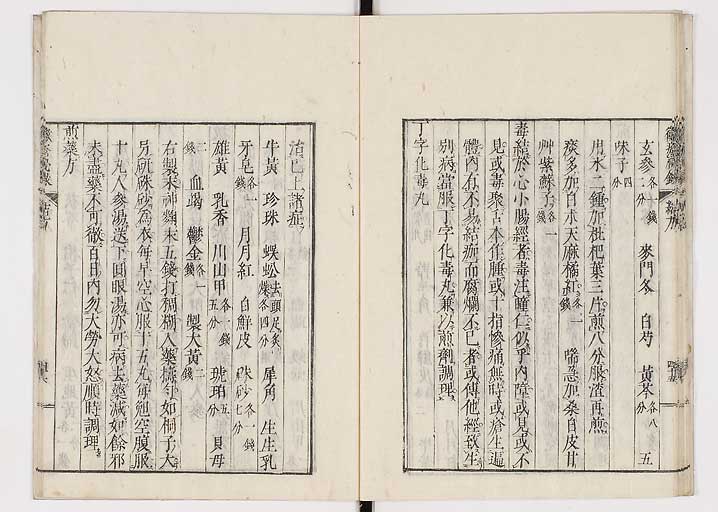 玄參 各一錢二分 麥門冬 白芍 黃芩 各八分 五
味子 四分
用水二鍾加枇杷葉三片煎八分服渣再煎
痰多加白朮天麻橘紅 各一錢 喘急加桑白皮甘
艸紫蘇子 各一錢
毒結於心小腸經者毒注瞳仁似乎內障或見或不
見或毒聚舌本隹腫或十指慘痛無時或瘡生遍
體內有不易結痂而腐爛不已者或傳他經致生
別病當服丁字化毒丸兼以煎劑調理
丁字化毒丸
治已上諸症
牛黃 珍珠 蜈蚣 去頭足炙燥各四分 犀角 生生乳
牙皂 各一錢 月月紅 白鮮皮 硃砂 各一錢七分
雄黃 乳香 川山甲 各一錢五分 琥珀 五 貝母
二錢 血竭 鬱金 各一錢 製大黃 二錢
右製末神麯末五錢打稠糊入藥擣勻如桐子大
另研硃砂為衣每早空心服十五丸每剋空腹服
十丸人參湯送下圓眼湯亦可病去藥減如餘邪
未盡藥不可徹百日內勿大勞大怒順時調理
煎藥方